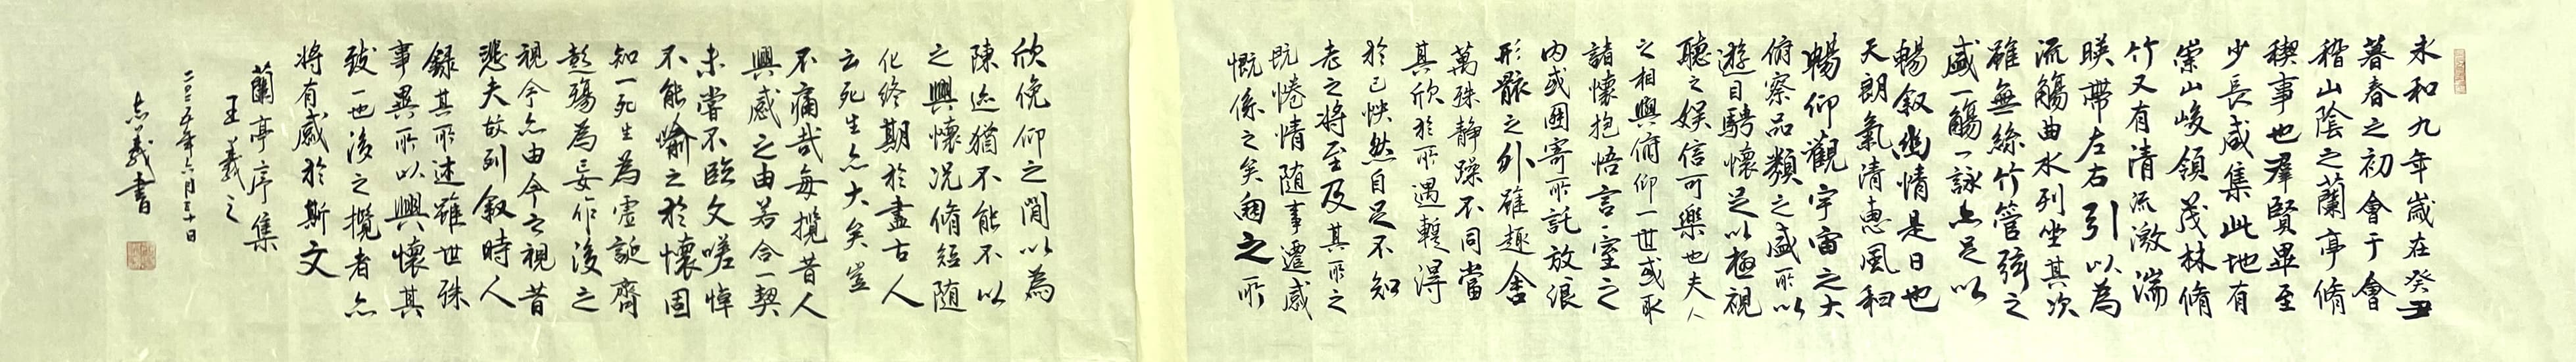 永和九年歲在癸丑
暮春之初會于會
稽山陰之蘭亭脩
稧事也羣賢畢至
少長咸集此地有
崇山峻領茂林脩
竹又有清流激湍
暎帶左右引以為
流觴曲水列坐其次
雖無絲竹管弦之
盛一觴一詠亦足以
暢敘幽情是日也
天朗氣清惠風和
暢仰觀宇宙之大
俯察品類之盛所以
遊目騁懷足以極視
聽之娛信可樂也夫人
之相與俯仰一世或取
諸懷抱悟言一室之
內或因寄所託放浪
形骸之外雖趣舍
萬殊靜躁不同當
其欣於所遇蹔得
於己怏然自足不知
老之將至及其所之
既惓情隨事遷感
慨係之矣向之所
欣俛仰之閒以為
陳迹猶不能不以
之興懷況脩短隨
化終期於盡古人
云死生亦大矣豈
不痛哉每攬昔人
興感之由若合一契
未嘗不臨文嗟悼
不能喻之於懷固
知一死生為虛誕齊
彭殤為妄作後之
視今亦由今之視昔
悲夫故列敘時人
錄其所述雖世殊
事異所以興懷其
致一也後之攬者亦
將有感於斯文
蘭亭序集
王羲之
二〇二五年六月三十日
志義書